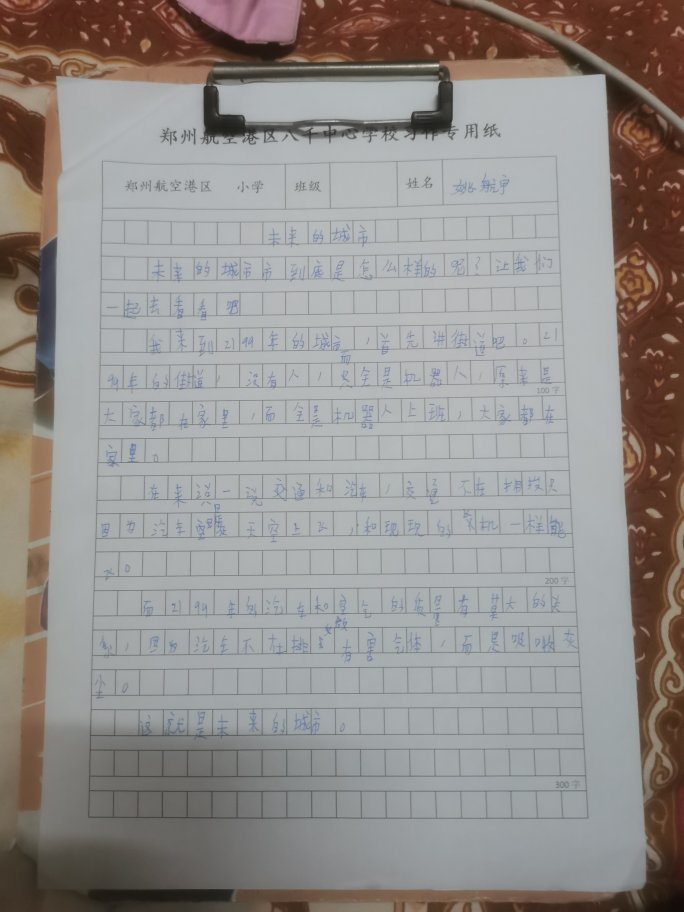 郑州航空港区八千中心学校习作专用纸
郑州航空港区 小学 班级 姓名 姚航宇
未来的城市
未来的城市市到底是怎么样的呢?让我们
一起去看看吧
我来到2199年的城市,首先讲街道吧。21
99年的街道,没有人,而全是机器人,原来是
100字
大家都在家里,而全是机器人上班,大家都在
家里。
在来说一说交通和汽车,交通不在拥
因为汽车是在天空上飞,和现现的飞机一样能
飞。
200字
而2199年的汽车和空气的质量有莫大的关
系,因为汽车不在排放有害气体,而是吸收灰
尘。
这就是未来的城市。
300字